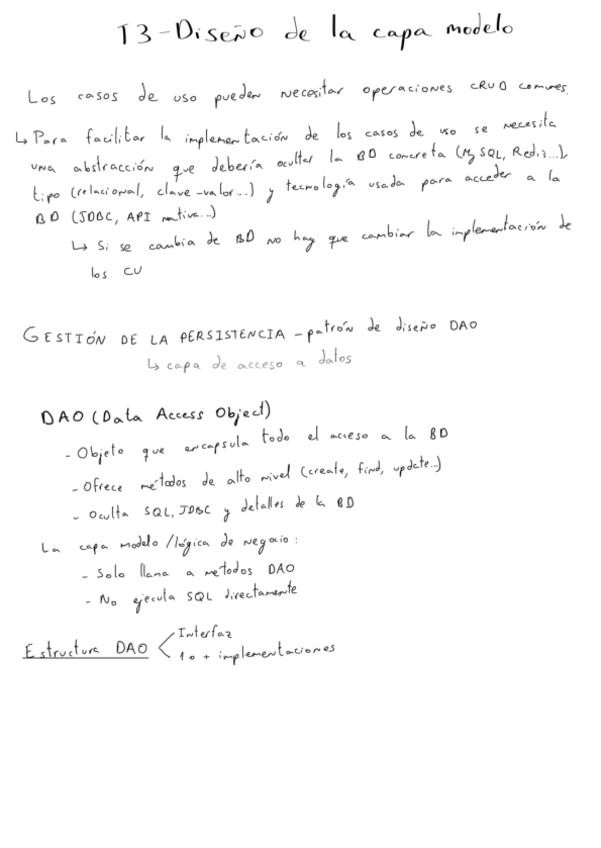 T3-Diseño de la capa modelo
Los casos de uso pueden necesitar operaciones CRUD comunes.
↳ Para facilitar la implementación de los casos de uso se necesita
una abstracción que debería ocultar la BD concreta (MySQL, Redis...),
tipo (relacional, clave-valor...) y tecnología usada para acceder a la
BD (JDBC, API nativa...)
↳ Si se cambia de BD no hay que cambiar la implementación de
los CU
GESTIÓN DE LA PERSISTENCIA - patrón de diseño DAO
↳ capa de acceso a datos
DAO (Data Access Object)
- Objeto que encapsula todo el acceso a la BD
- Ofrece métodos de alto nivel (create, find, update...)
- Oculta SQL, JDBC y detalles de la BD
La capa modelo/lógica de negocio:
- Solo llama a metodos DAO
- No ejecuta SQL directamente
Estructura DAO
Interfaz
1 o + implementaciones